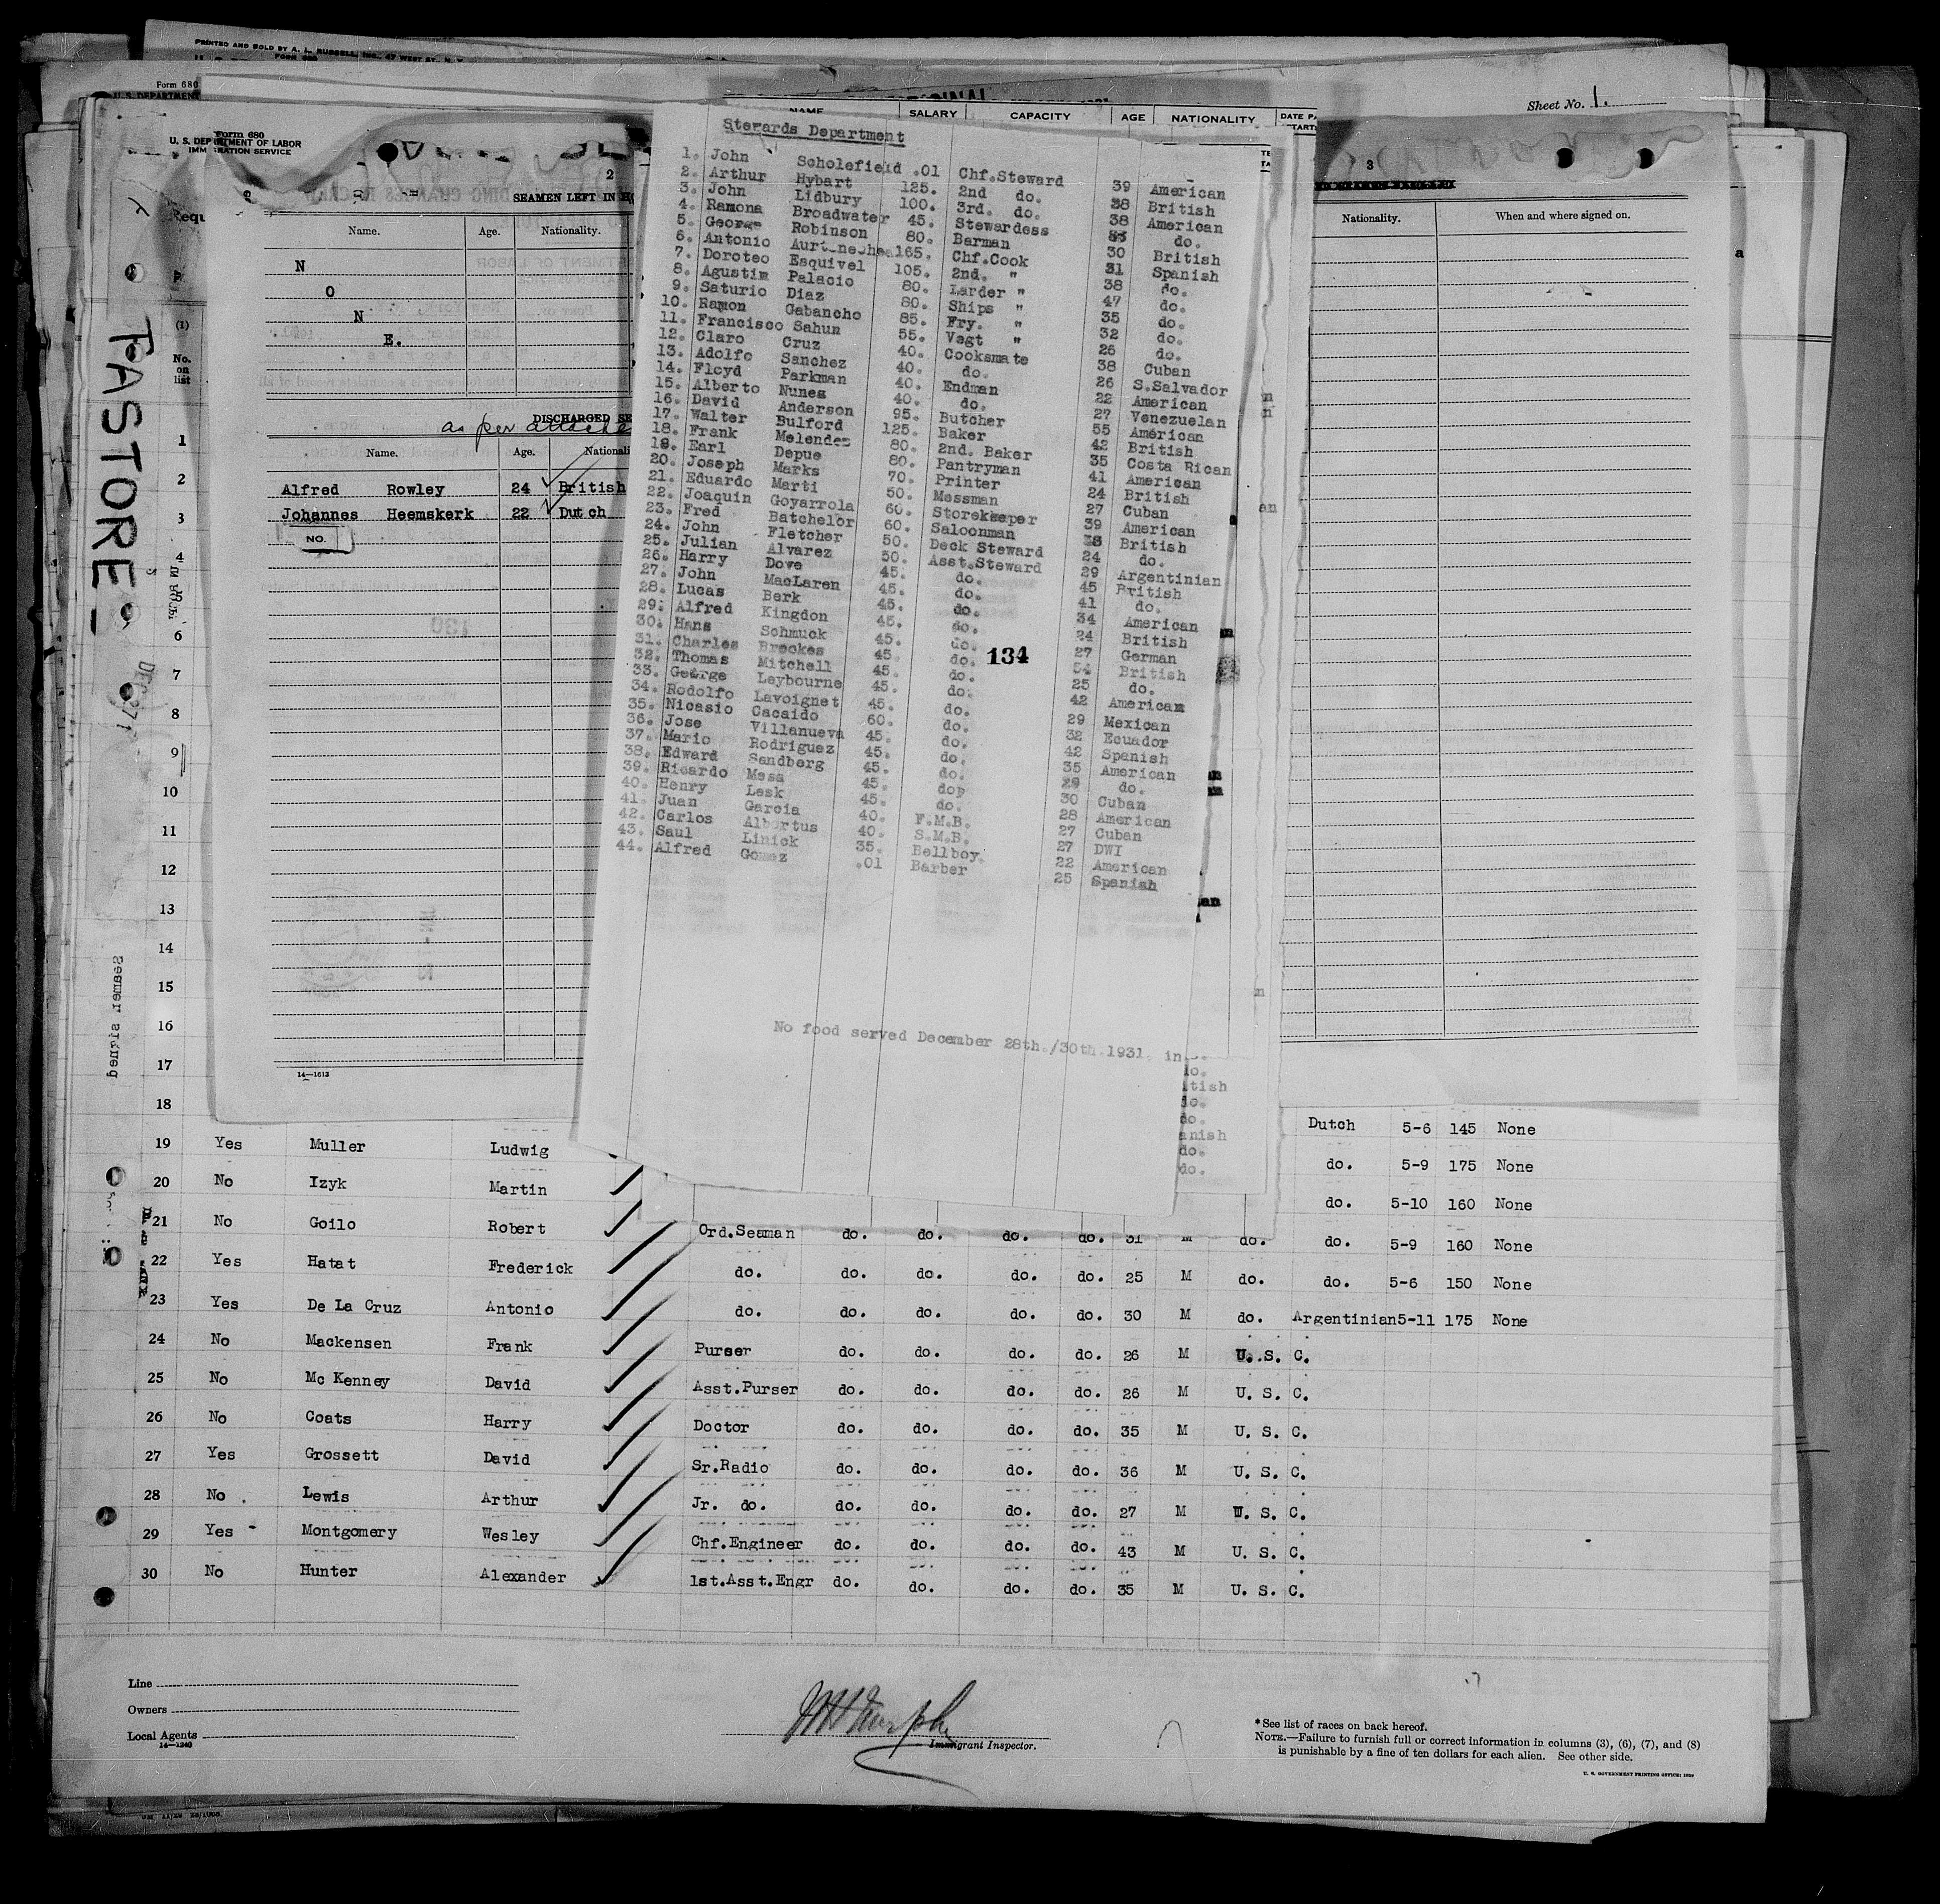 PRINTED AND SOLD BY A. L. RUSSELL, INC., 47 WEST ST., N. Y.
Form 680
Sheet No. 1.
Form 680
U. S. DEPARTMENT OF LABOR
IMMIGRATION SERVICE
2
SEAMEN LEFT IN
Name. Age. Nationality.
N
O
N
E.
DISCHARGED SE
as per attache
Name. Age. Nationali
Alfred Rowley 24 British
Johannes Heemskerk 22 Dutch
NO.
14—1613
PASTORES
3
Nationality. When and where signed on.
NAME SALARY CAPACITY AGE NATIONALITY
Stewards Department
1. John Scholefield .01 Chf.Steward 39 American
2. Arthur Hybart 125. 2nd do. 38 British
3. John Lidbury 100. 3rd. do. 38 American
4. Ramona Broadwater 45. Stewardess 43 do.
5. George Robinson 80. Barman 30 British
6. Antonio 165. Chf.Cook 31 Spanish
7. Doroteo Esquivel 105. 2nd. " 38 do.
8. Agustin Palacio 80. Larder " 47 do.
9. Saturio Diaz 80. Ships " 35 do.
10. Ramon Gabancho 85. Fry. " 32 do.
11. Francisco Sahun 55. Vegt " 26 do.
12. Claro Cruz 40. Cooksmate 38 Cuban
13. Adolfo Sanchez 40. do. 26 S.Salvador
14. Floyd Parkman 40. Endman 22 American
15. Alberto Nunes 40. do. 27 Venezuelan
16. David Anderson 95. Butcher 55 American
17. Walter Bulford 125. Baker 42 British
18. Frank Melendez 80. 2nd. Baker 35 Costa Rican
19. Earl Depue 80. Pantryman 41 American
20. Joseph Marks 70. Printer 24 British
21. Eduardo Marti 50. Messman 27 Cuban
22. Joaquin Goyarrola 60. Storekeeper 39 American
23. Fred Batchelor 60. Saloonman 38 British
24. John Fletcher 50. Deck Steward 24 do.
25. Julian Alvarez 50. Asst.Steward 29 Argentinian
26. Harry Dove 45. do. 45 British
27. John MacLaren 45. do. 41 do.
28. Lucas Berk 45. do. 34 American
29. Alfred Kingdon 45. do. 24 British
30. Hans Schmuck 45. do. 27 German
31. Charles Brookes 45. do. 54 British
32. Thomas Mitchell 45. do. 25 do.
33. George Leybourne 45. do. 42 American
34. Rodolfo Lavoignet 45. do. 29 Mexican
35. Nicasio Cacaido 60. do. 32 Ecuador
36. Jose Villanueva 45. do. 42 Spanish
37. Mario Rodriguez 45. do. 35 American
38. Edward Sandberg 45. do. 29 do.
39. Ricardo Mesa 45. dop 30 Cuban
40. Henry Lesk 45. do. 28 American
41. Juan Garcia 40. F.M.B. 27 Cuban
42. Carlos Albertus 40. S.M.B. 27 DWI
43. Saul Linick 35. Bellboy. 22 American
44. Alfred Gomez .01 Barber 25 Spanish
134
No food served December 28th./30th.1931. in
(1)
No. on list
1
2
3
4
5
6
7
8
9
10
11
12
13
14
15
16
17
18
Dutch 5-6 145 None
19 Yes Muller Ludwig do. 5-9 175 None
20 No Izyk Martin do. 5-10 160 None
21 No Goilo Robert Ord.Seaman do. do. do. do. 31 M do. do. 5-9 160 None
22 Yes Hatat Frederick do. do. do. do. do. 25 M do. do. 5-6 150 None
23 Yes De La Cruz Antonio do. do. do. do. do. 30 M do. Argentinian 5-11 175 None
24 No Mackensen Frank Purser do. do. do. do. 26 M U. S. C.
25 No Mc Kenney David Asst.Purser do. do. do. do. 26 M U. S. C.
26 No Coats Harry Doctor do. do. do. do. 35 M U. S. C.
27 Yes Grossett David Sr.Radio do. do. do. do. 36 M U. S. C.
28 No Lewis Arthur Jr. do. do. do. do. do. 27 M U. S. C.
29 Yes Montgomery Wesley Chf.Engineer do. do. do. do. 43 M U. S. C.
30 No Hunter Alexander 1st.Asst.Engr do. do. do. do. 35 M U. S. C.
Line
Owners
Local Agents
14—1240
Immigrant Inspector.
* See list of races on back hereof.
NOTE.—Failure to furnish full or correct information in columns (3), (6), (7), and (8)
is punishable by a fine of ten dollars for each alien. See other side.
U. S. GOVERNMENT PRINTING OFFICE: 1929